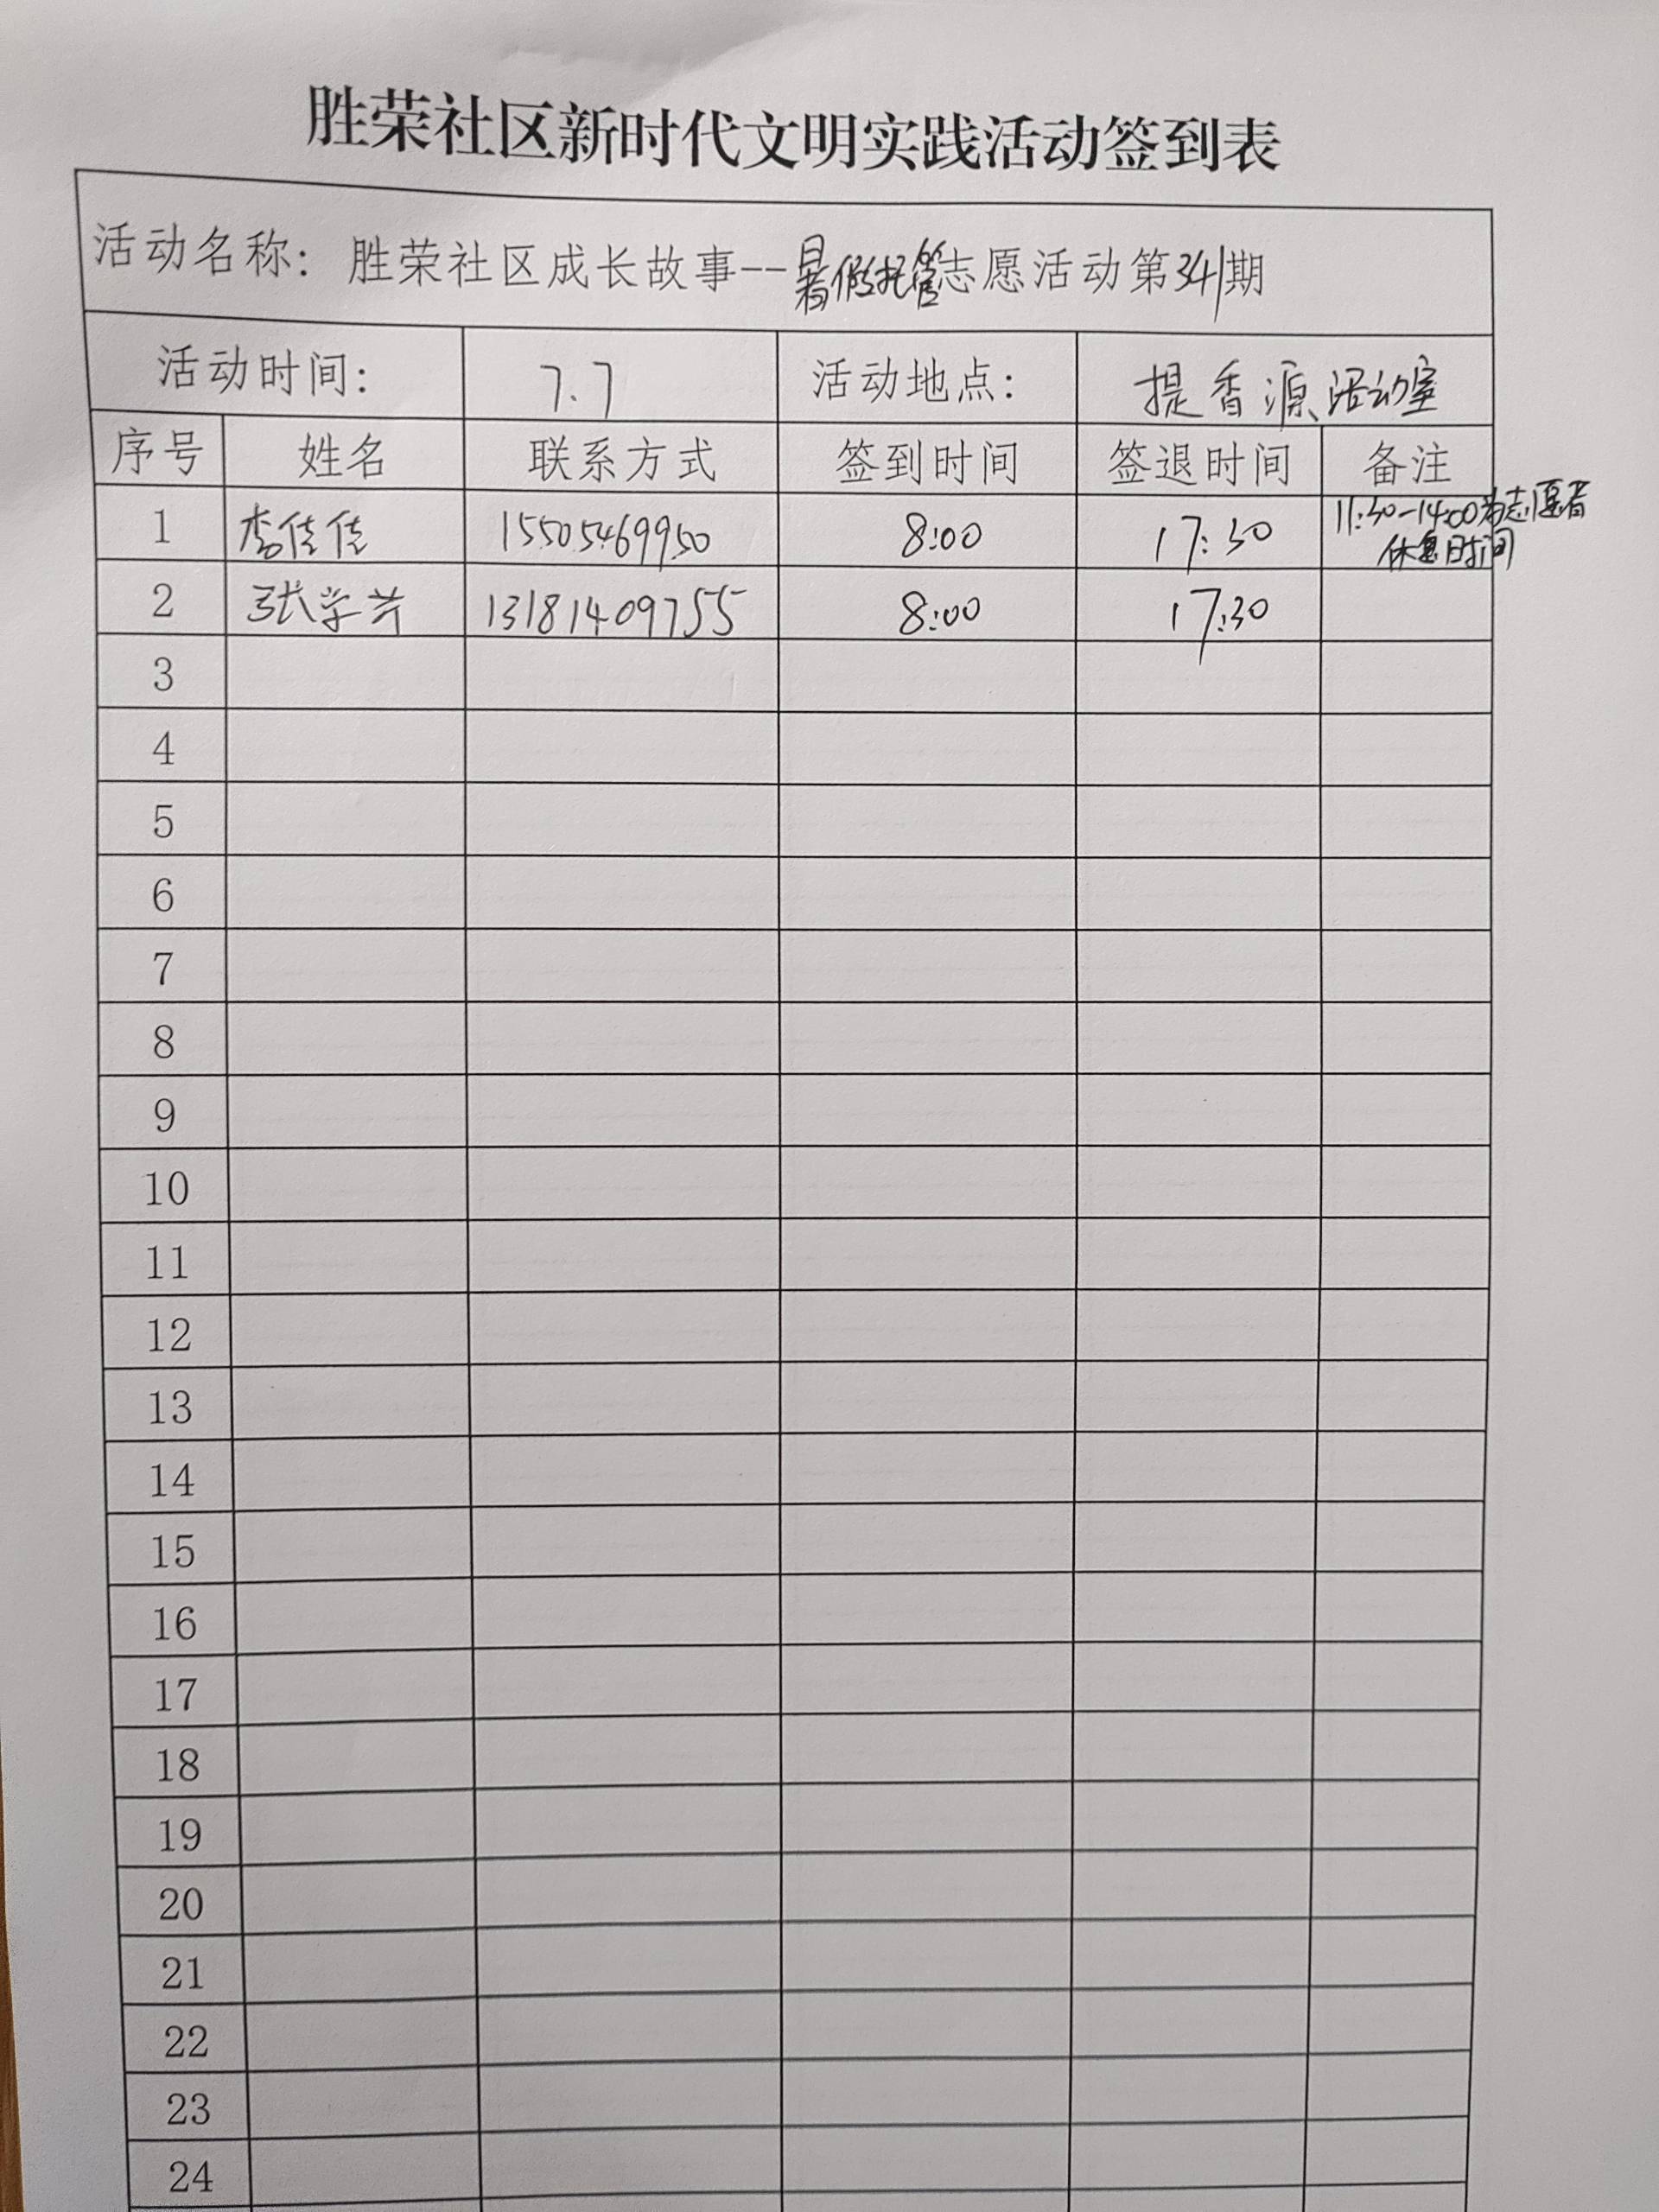 胜荣社区新时代文明实践活动签到表
活动名称：胜荣社区成长故事--暑假托管志愿活动第341期
活动时间： 7.7 活动地点： 提香源活动室
序号 姓名 联系方式 签到时间 签退时间 备注
1 李佳佳 15505469950 8:00 17:30 11:30-14:00为志愿者
休息时间
2 张学芳 13181409755 8:00 17:30
3
4
5
6
7
8
9
10
11
12
13
14
15
16
17
18
19
20
21
22
23
24